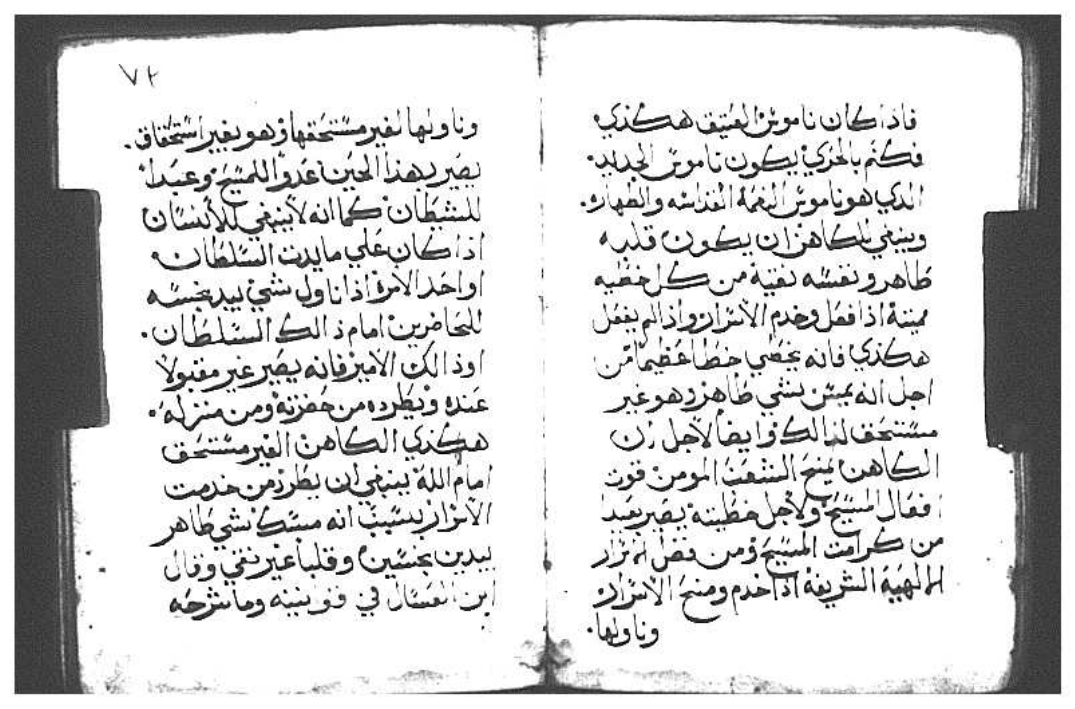 فاذا كان ناموس العتيق هكذي
فكم بالحري يكون ناموس الجديد.
الدي هو ناموس النعمة القداسه والطهاره.
وينبغي للكاهن ان يكون قلبه
طاهر ونفسه نقية من كل خطيه
مميتة اذا فعل وخدم الاسرار واذا لم يفعل
هكذي فانه يخطي خطا عظيما من
اجل انه يمس بشي طاهر وهو غير
مستحق لذالك وايضا لاجل ان
الكاهن يمنح الشعب المومن قوت
افعال المسيح ولاجل خطيته يصير بعيدا
من كرامت المسيح ومن فضل الاسرار
الالهية الشريفة اذا خدم ومنح الاسرار
وناولها.
٧٢
وناولها لغير مستحقها وهو بغير استحقاق.
يصير بهذا الحين عدوا للمسيح وعبدا
للشيطان كما انه لا ينبغي للانسان
اذا كان علي مايدت السلطان.
او احد الامرا اذا ناول شي بيد نجسه
للحاضرين امام ذالك السلطان.
او ذالك الامير فانه يصير غير مقبولا
عنده ويطرده من حضرته ومن منزله.
هكذي الكاهن الغير مستحق
امام الله ينبغي ان يطرد من خدمت
الاسرار بسبب انه مسك شي طاهر
بيدين نجسين وقلبا غير نقي وقال
ابن العسال في قوانينه وما شرحه